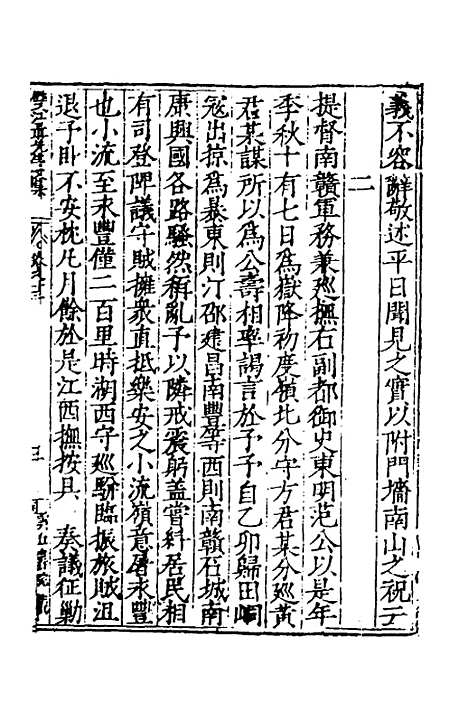 義不容辭敬述平日聞見之實以附門墻南山之祝云
二
提督南贛軍務兼巡撫右副都御史東明范公以是年
季秋十有七日為嶽降初度嶺北分守方君某分巡黃
君某謀所以為公壽相率謁言於予予自乙卯歸田峒
寇出掠為暴東則汀邵建昌南豐等西則南贛石城南
康興國各路騷然稱亂予以隣戒震躬盖嘗糾居民相
有司登陴議守賊擁衆直抵樂安之小流嶺意屠永豐
也小流至永豐僅二百里時湖西守巡馳臨振旅賊沮
退予卧不安枕凡月餘於是江西撫按具 奏議征勦